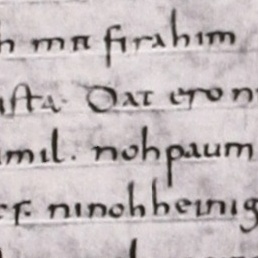 h mit firahim
ista· Dat ero n
imil. noh paum
ninohheinig